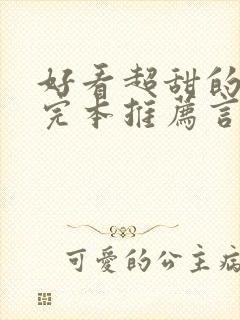 好看超甜的
完本推薦言
可愛的公主病